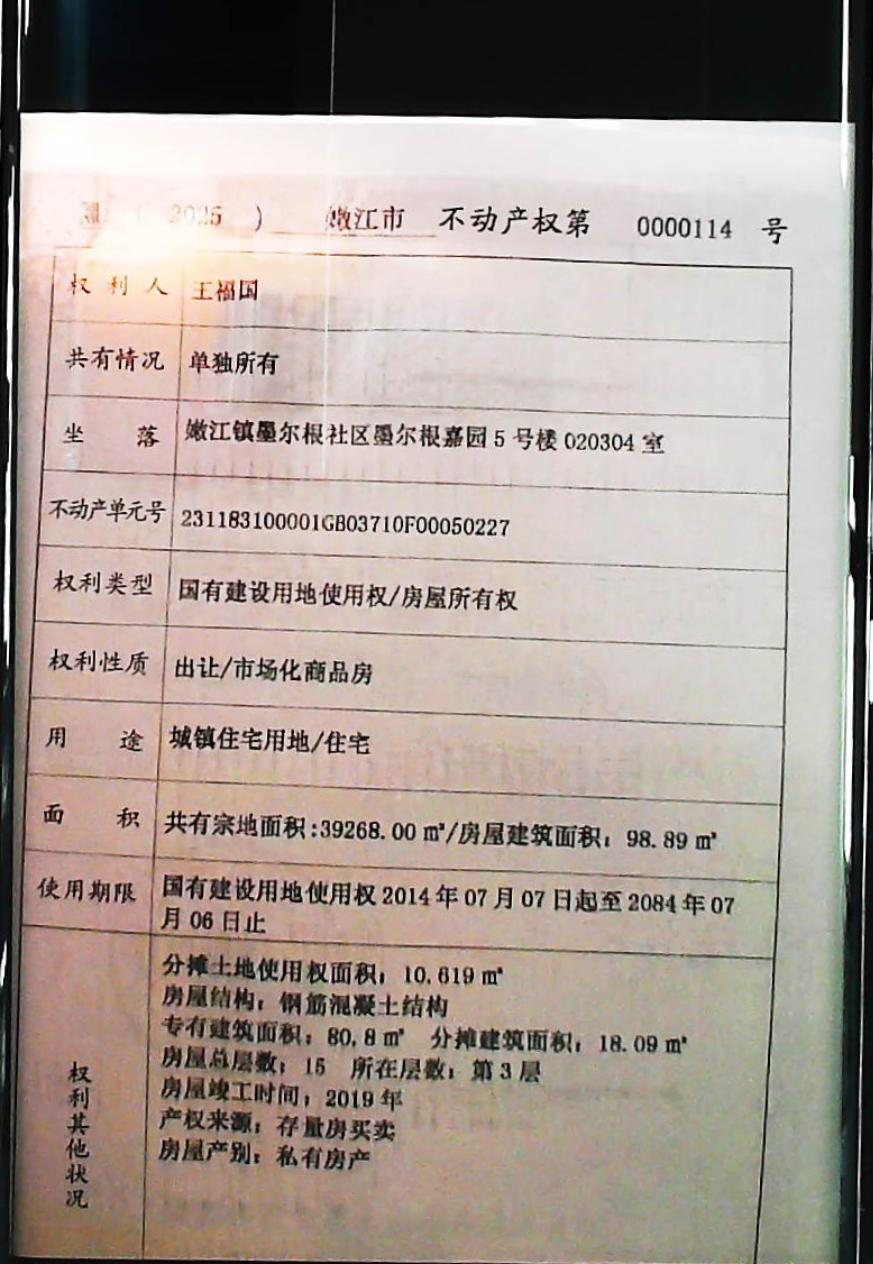 黑 ( 2025 ) 嫩江市 不动产权第 0000114 号
权利人 王福国
共有情况 单独所有
坐落 嫩江镇墨尔根社区墨尔根嘉园 5 号楼 020304 室
不动产单元号 231183100001GB03710F00050227
权利类型 国有建设用地使用权/房屋所有权
权利性质 出让/市场化商品房
用途 城镇住宅用地/住宅
面积 共有宗地面积:39268.00 ㎡/房屋建筑面积: 98.89 ㎡
使用期限 国有建设用地使用权 2014 年 07 月 07 日起至 2084 年 07
月 06 日止
权利其他状况
分摊土地使用权面积: 10.619 ㎡
房屋结构: 钢筋混凝土结构
专有建筑面积: 80.8 ㎡ 分摊建筑面积: 18.09 ㎡
房屋总层数: 15 所在层数: 第 3 层
房屋竣工时间: 2019 年
产权来源: 存量房买卖
房屋产别: 私有房产